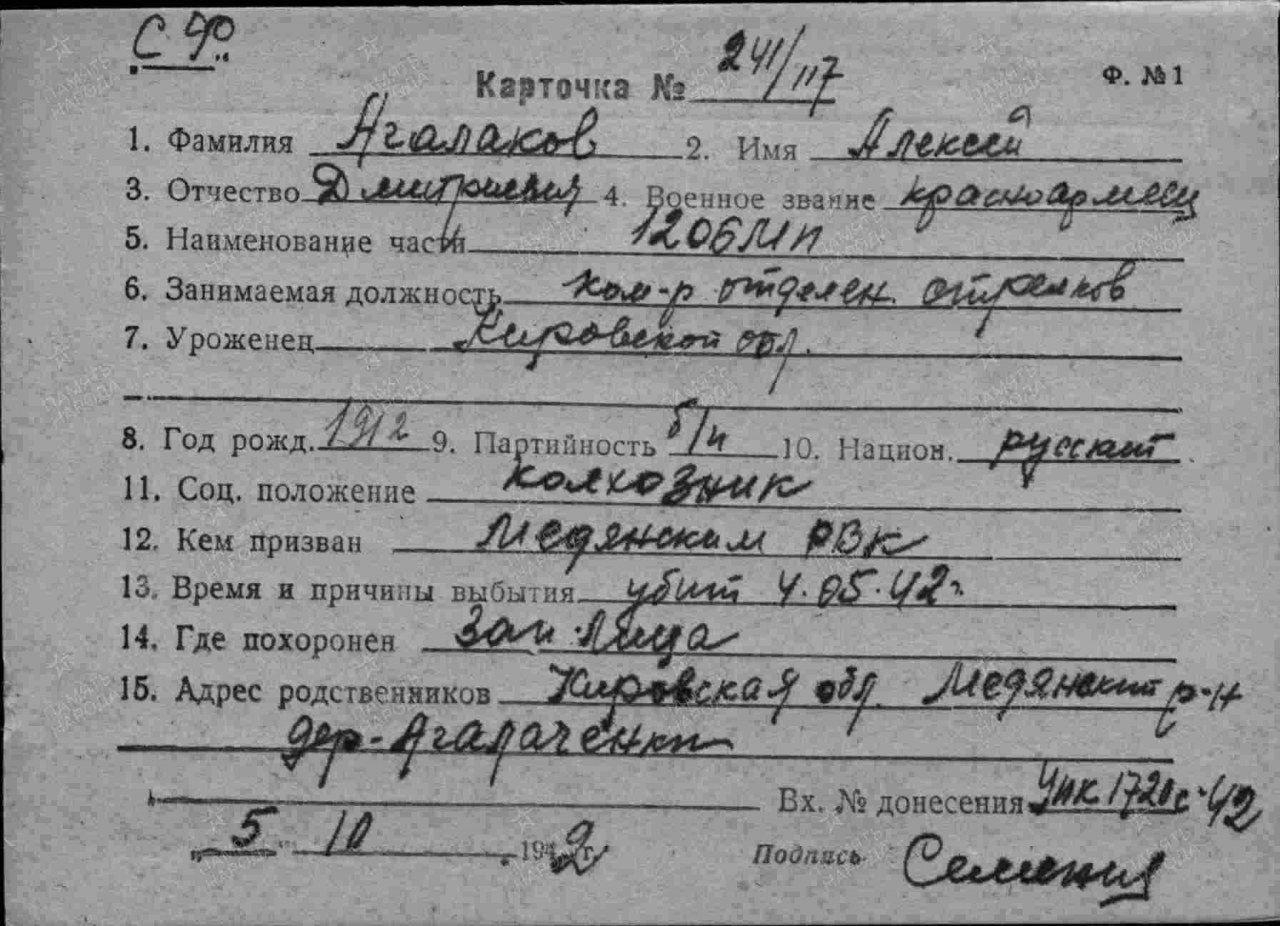 С Ф
Карточка № 241/117 Ф. №1
1. Фамилия Агалаков 2. Имя Алексей
3. Отчество Дмитриевич 4. Военное звание красноармеец
5. Наименование части 1206 МП
6. Занимаемая должность ком-р отделен. стрелков
7. Уроженец Кировской обл.
8. Год рожд. 1912 9. Партийность б/п 10. Национ. русский
11. Соц. положение колхозник
12. Кем призван Медянским РВК
13. Время и причины выбытия убит 4.05.42 г.
14. Где похоронен Зап. Лица
15. Адрес родственников Кировская обл. Медянский р-н
дер. Агалаченки
Вх. № донесения упк 1720с-42
„5" 10 1942 г. Подпись